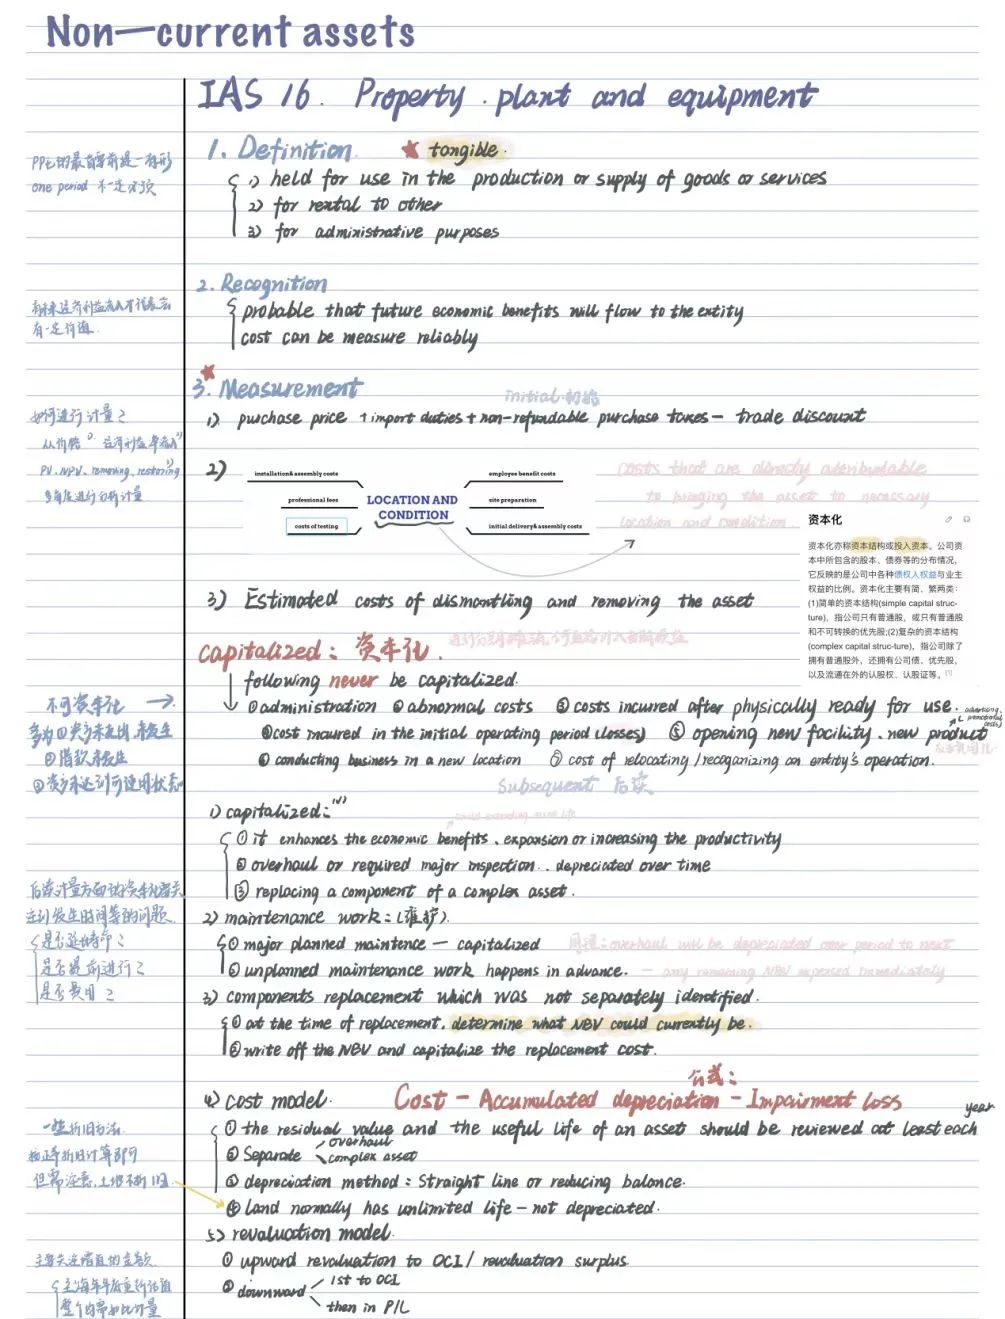 Non-current assets
IAS 16. Property. plant and equipment
1. Definition. ★ tangible.
PPE的最首要前提一有形
one period 不一定必须
1) held for use in the production or supply of goods or services
2) for rental to other
3) for administrative purposes
2. Recognition
probable that future economic benefits will flow to the entity
有一定价值.
cost can be measure reliably
★
3. Measurement
initial 初始
如何进行计量?
1). purchase price + import duties + non-refundable purchase taxes - trade discount
PV、NPV、removing、restoring
多角度进行分析计量
2)
installation& assembly costs
professional fees
costs of testing
LOCATION AND
CONDITION
employee benefit costs
site preparation
initial delivery& assembly costs
costs that are directly attributable
to bringing the asset to necessary
location and condition
资本化
资本化亦称资本结构或投入资本。公司资
本中所包含的股本、债券等的分布情况,
它反映的是公司中各种债权人权益与业主
权益的比例。资本化主要有简、繁两类:
(1)简单的资本结构(simple capital struc-
ture)，指公司只有普通股，或只有普通股
和不可转换的优先股;(2)复杂的资本结构
(complex capital struc-ture)，指公司除了
拥有普通股外、还拥有公司债、优先股,
以及流通在外的认股权、认股证等。[1]
3) Estimated costs of dismantling and removing the asset
capitalized: 资本化.
following never be capitalized.
不可资本化 →
①administration ②abnormal costs ③costs incurred after physically ready for use.
④cost incurred in the initial operating period (losses) ⑤ opening new facility. new product
advertising, promotional costs
⑥ conducting business in a new location ⑦ cost of relocating/recoganizing an entity's operation.
②借款未发生
③资产未达到可使用状态
Subsequent 后续
1) capitalized:
could extending useful life
①it enhances the economic benefits. expansion or increasing the productivity
② overhaul or required major inspection.. depreciated over time
③ replacing a component of a complex asset.
后续计量方面的资本化首先
注到发生时间等的问题.
是否延寿命?
是否提前进行?
是否费用?
2) maintenance work: (维护).
① major planned maintence — capitalized
overhaul will be depreciated over period to next
② unplanned maintenance work happens in advance. — any remaining NBV expensed immediately
3) components replacement which was not separately identified.
① at the time of replacement. determine what NBV could currently be.
② write off the NBV and capitalize the replacement cost.
公式:
4) cost model. Cost - Accumulated depreciation - Impairment loss
① the residual value and the useful life of an asset should be reviewed at least each year
一些折旧方法.
按正常折旧计算即可
但需注意,土地不折旧.
② Separate overhaul
complex asset
③ depreciation method: Straight line or reducing balance.
④ land normally has unlimited life - not depreciated.
5) revaluation model.
① upward revaluation to OCI / revaluation surplus
② downward 1st to OCI
then in P/L